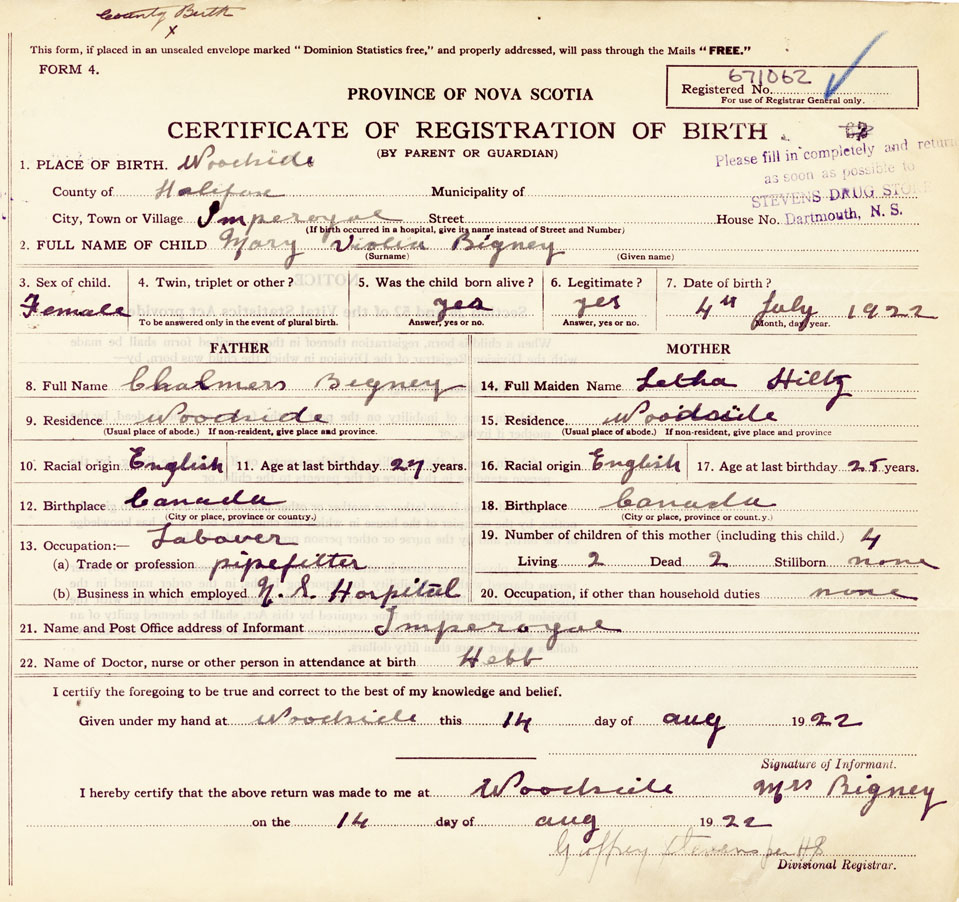 County Birth
x
This form, if placed in an unsealed envelope marked "Dominion Statistics free," and properly addressed, will pass through the Mails "FREE."
FORM 4.
671062
Registered No.
For use of Registrar General only.
PROVINCE OF NOVA SCOTIA
CERTIFICATE OF REGISTRATION OF BIRTH
(BY PARENT OR GUARDIAN)
Please fill in completely and return
as soon as possible to
STEVENS DRUG STORE
Dartmouth, N. S.
1. PLACE OF BIRTH. Woodside
County of Halifax Municipality of
City, Town or Village Imperoyal Street House No.
(If birth occurred in a hospital, give its name instead of Street and Number)
2. FULL NAME OF CHILD Mary Violia Bigney
(Surname) (Given name)
3. Sex of child. 4. Twin, triplet or other? 5. Was the child born alive? 6. Legitimate? 7. Date of birth?
Female yes yes 4th July 1922
To be answered only in the event of plural birth. Answer, yes or no. Answer, yes or no. Month, day, year.
FATHER MOTHER
8. Full Name Chalmers Bigney 14. Full Maiden Name Letha Hiltz
9. Residence Woodside 15. Residence Woodside
(Usual place of abode.) If non-resident, give place and province. (Usual place of abode.) If non-resident, give place and province
10. Racial origin English 11. Age at last birthday 27 years. 16. Racial origin English 17. Age at last birthday 25 years.
12. Birthplace Canada 18. Birthplace Canada
(City or place, province or country.) (City or place, province or country.)
13. Occupation:— Labover 19. Number of children of this mother (including this child.) 4
(a) Trade or profession pipefitter Living 2 Dead 2 Stillborn none
(b) Business in which employed N. S. Hospital 20. Occupation, if other than household duties none
21. Name and Post Office address of Informant Imperoyal
22. Name of Doctor, nurse or other person in attendance at birth Hebb
I certify the foregoing to be true and correct to the best of my knowledge and belief.
Given under my hand at Woodside this 14 day of aug 1922
Signature of Informant.
I hereby certify that the above return was made to me at Woodside Mrs Bigney
on the 14 day of aug 1922
Geoffrey Stevens per HS
Divisional Registrar.